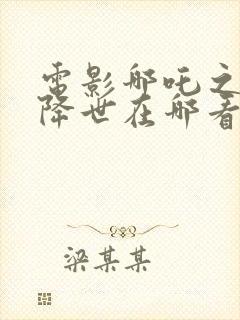 电影哪吒之
降世在哪看
梁某某